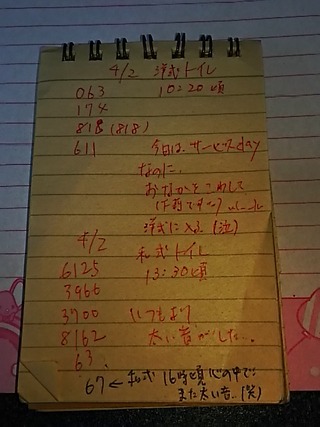 4/2 洋式トイレ
063 10:20頃
174
818 (818)
611 今日は、サービスday
なのに、
おなかをこわして
洋式に入る (泣)
4/2 和式トイレ
6125 13:30頃
3966
3700 いつもより
8162 太い音がした...
63
67 ← 和式 16時頃 心の中で:
また太い音..(笑)